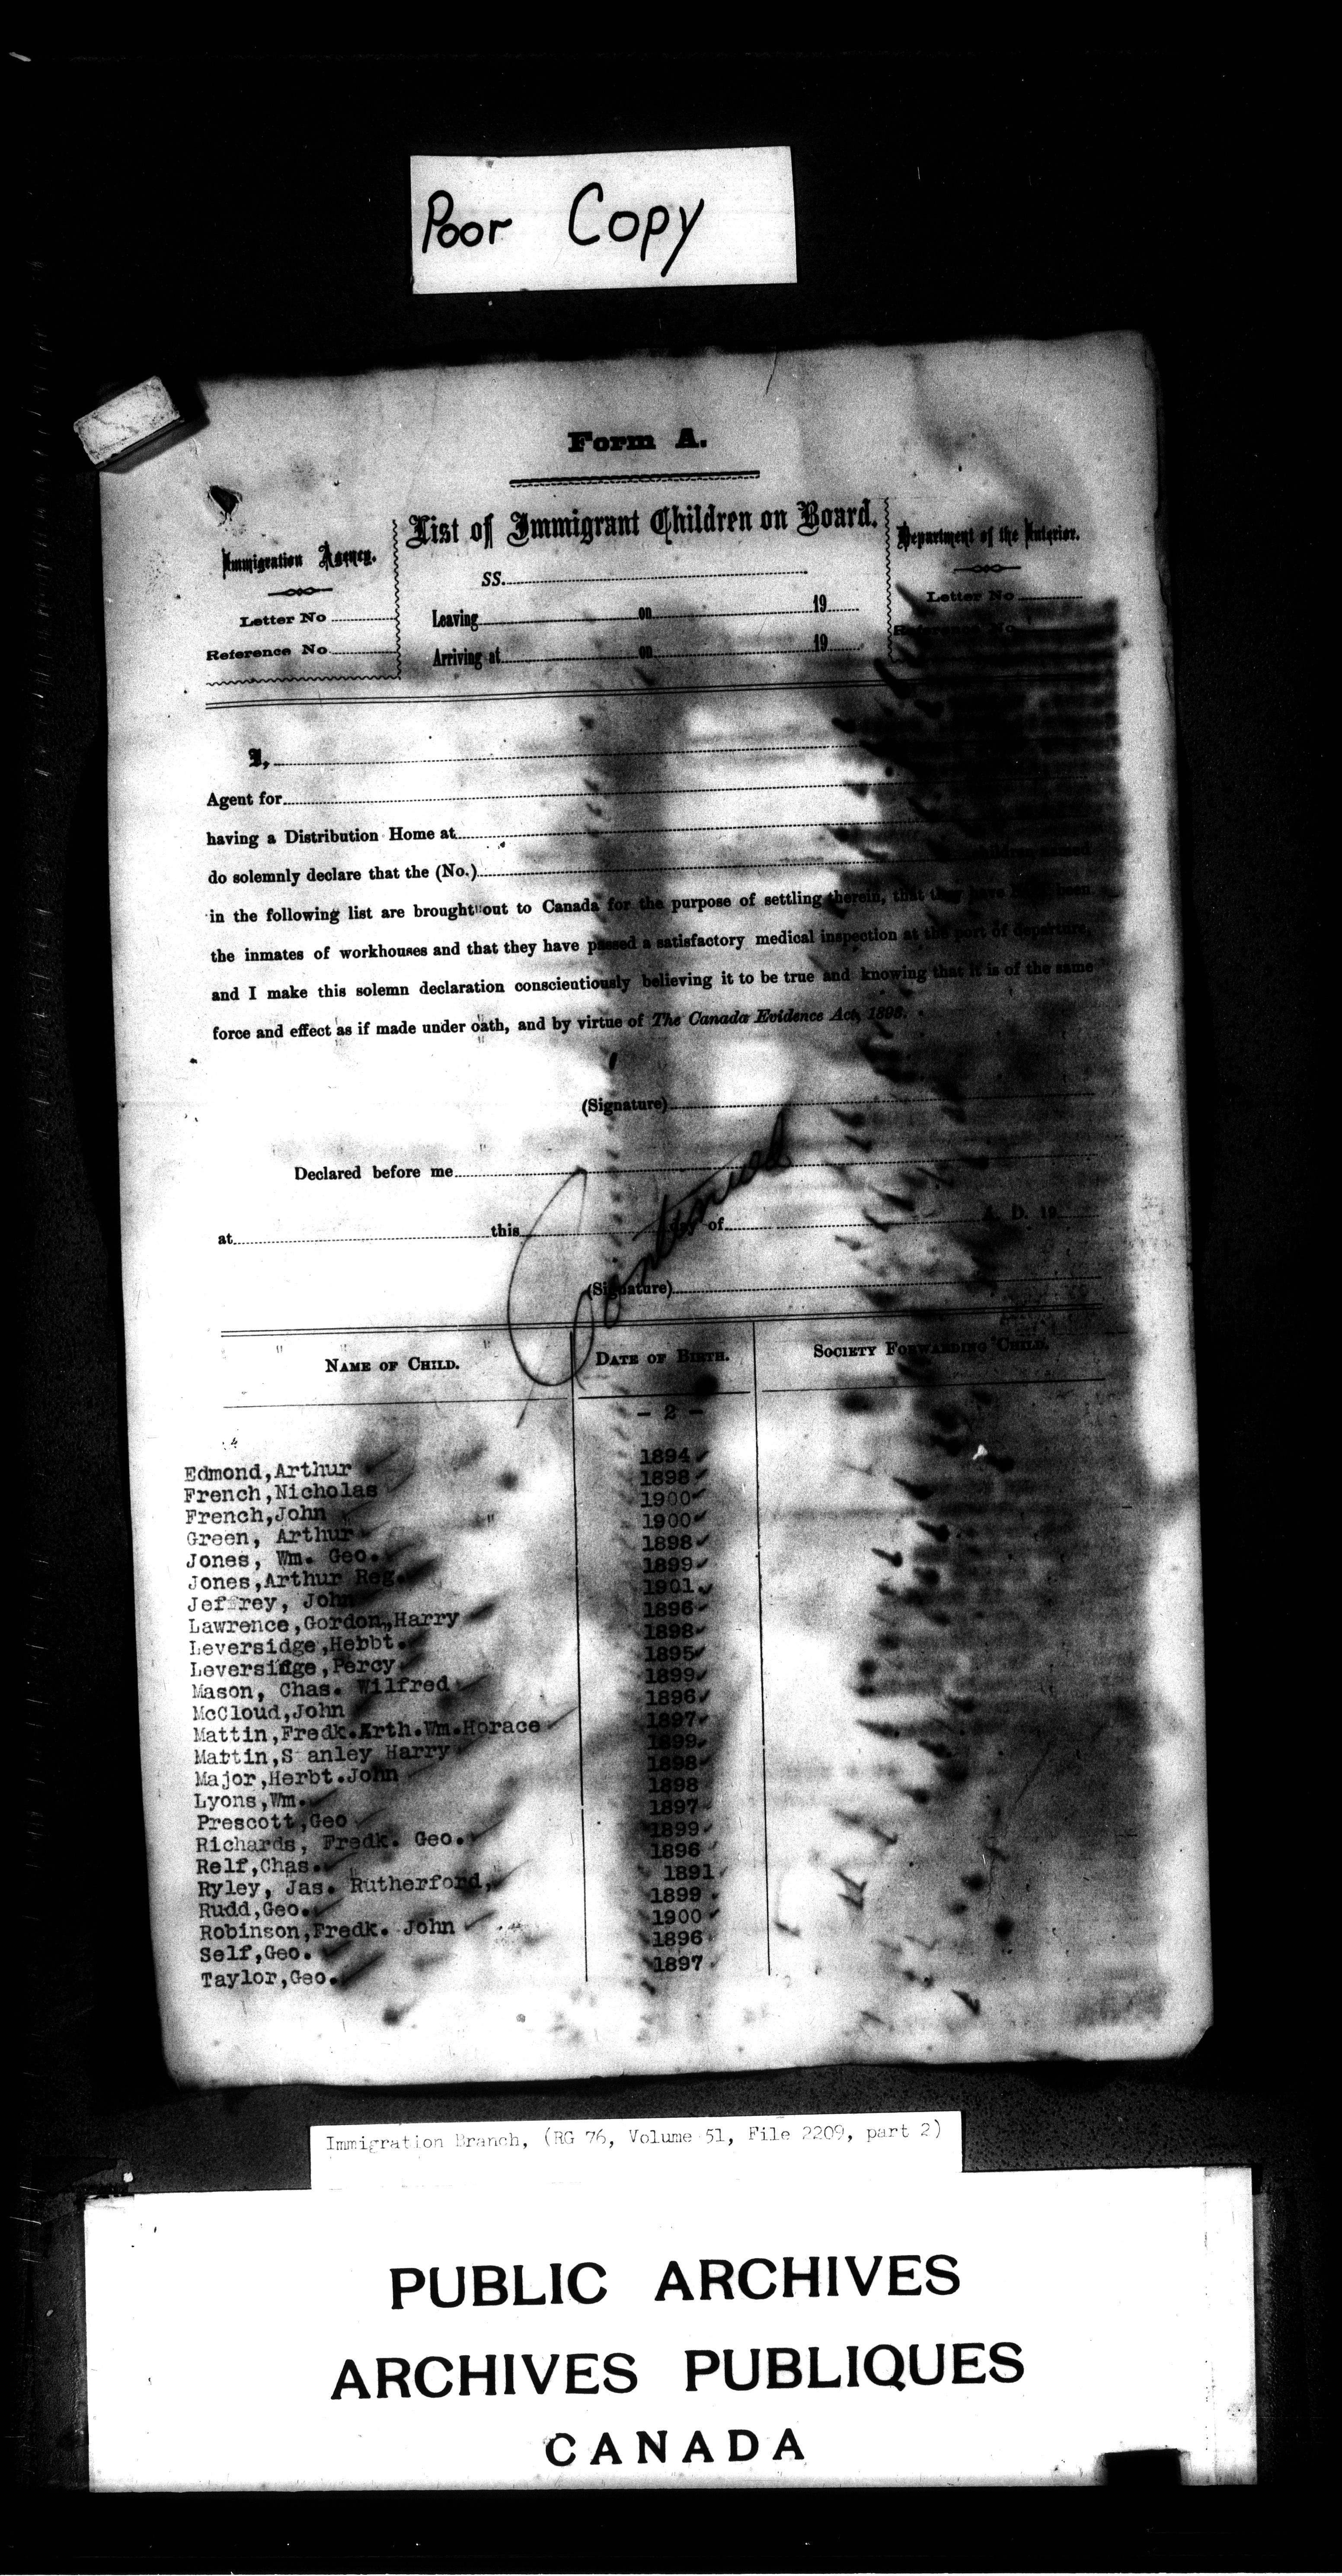 Poor Copy
Form A.
List of Immigrant Children on Board.
Immigration Agency.
Letter No
Reference No
SS.
Leaving on 19
Arriving at on 19
Department of the Interior.
Letter No
Reference No
I,
Agent for
having a Distribution Home at
do solemnly declare that the (No.)
in the following list are brought out to Canada for the purpose of settling therein, that they have been
the inmates of workhouses and that they have passed a satisfactory medical inspection at the port of departure,
and I make this solemn declaration conscientiously believing it to be true and knowing that it is of the same
force and effect as if made under oath, and by virtue of The Canada Evidence Act, 1893.
(Signature)
Declared before me
at this day of A. D. 19
Continued
(Signature)
NAME OF CHILD. DATE OF BIRTH. SOCIETY FORWARDING CHILD.
- 2 -
Edmond,Arthur 1894
French,Nicholas 1898
French,John 1900
Green, Arthur 1900
Jones, Wm. Geo. 1898
Jones,Arthur Reg. 1899
Jeffrey, John 1901
Lawrence,Gordon,Harry 1896
Leversidge,Hebbt. 1898
Leversidge,Percy 1895
Mason, Chas. Wilfred 1899
McCloud,John 1896
Mattin,Fredk.Arth.Wm.Horace 1897
Mattin,S anley Harry 1899
Major,Herbt.John 1898
Lyons,Wm. 1898
Prescott,Geo 1897
Richards, Fredk. Geo. 1899
Relf,Chas. 1896
Ryley, Jas. Rutherford, 1891
Rudd,Geo. 1899
Robinson,Fredk. John 1900
Self,Geo. 1896
Taylor,Geo. 1897
Immigration Branch, (RG 76, Volume 51, File 2209, part 2)
PUBLIC ARCHIVES
ARCHIVES PUBLIQUES
CANADA